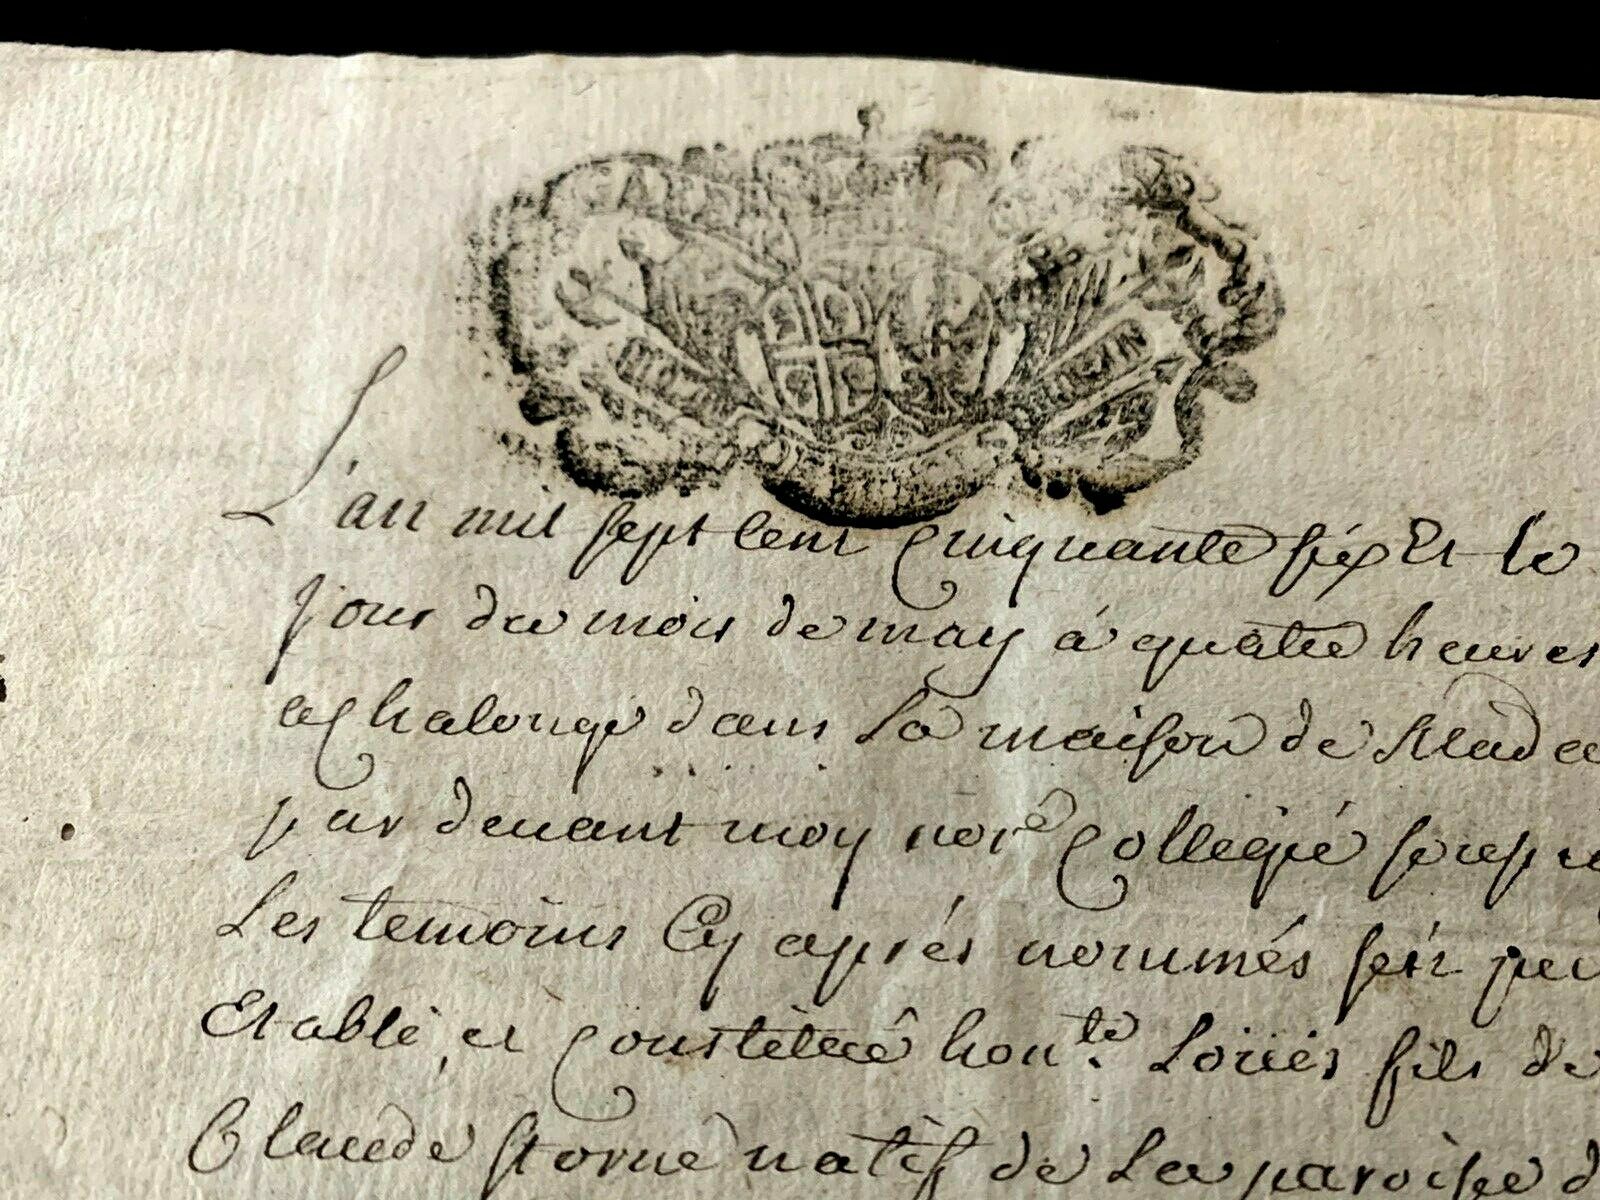 L'an mil sept cent cinquante six Et le
jour du mois de may à quatre heures
a chalonge dans La maison de Mada
par devant moy nore Collegié
Les temoins Cy aprés nommés s'est
Etabli, et Constitué honte. Loüis fils de
Claude natif de La paroisse d